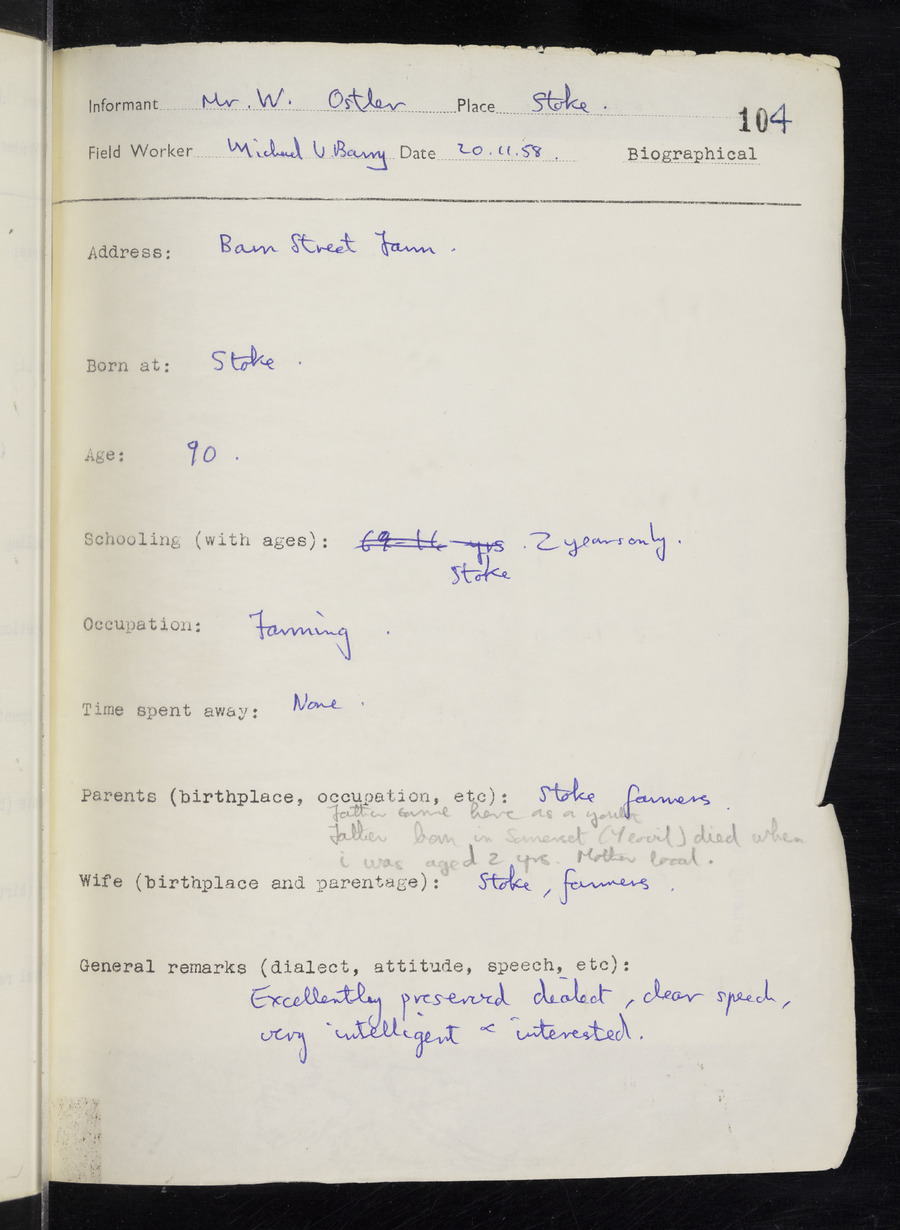 Informant Mr. W. Ostler Place Stoke.
104
Field Worker Michael V. Barry Date 20.11.58. Biographical
Address: Barn Street Farm.
Born at: Stoke.
Age: 90.
Schooling (with ages): yrs. 2 years only.
Stoke
Occupation: Farming.
Time spent away: None.
Parents (birthplace, occupation, etc): Stoke farmers.
Father came here as a youth
Father born in Somerset (Yeovil) died when
i was aged 2 yrs. Mother local.
Wife (birthplace and parentage): Stoke, farmers.
General remarks (dialect, attitude, speech, etc):
Excellently preserved dialect, clear speech,
very intelligent & interested.